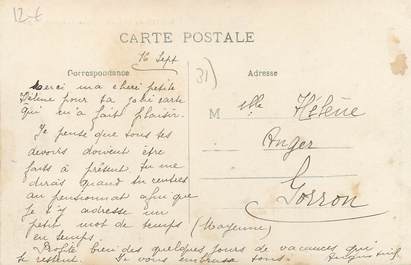 12€
CARTE POSTALE
16 Sept
Correspondance
31)
Adresse
Merci, ma cheri petite
Hélène pour ta jolie carte
qui m'a fait plaisir.
Je pense que tous tes
devoirs doivent être
faits à présent. Tu me
diras quand tu rentres
au pensionnat afin que
je t'y adresse un
petit mot de temps
en temps.
Profite bien des quelques jours de vacances qui
te restent. Je vous embrasse tous.
M elle Hélène
Anger
Gorron
(Mayenne)